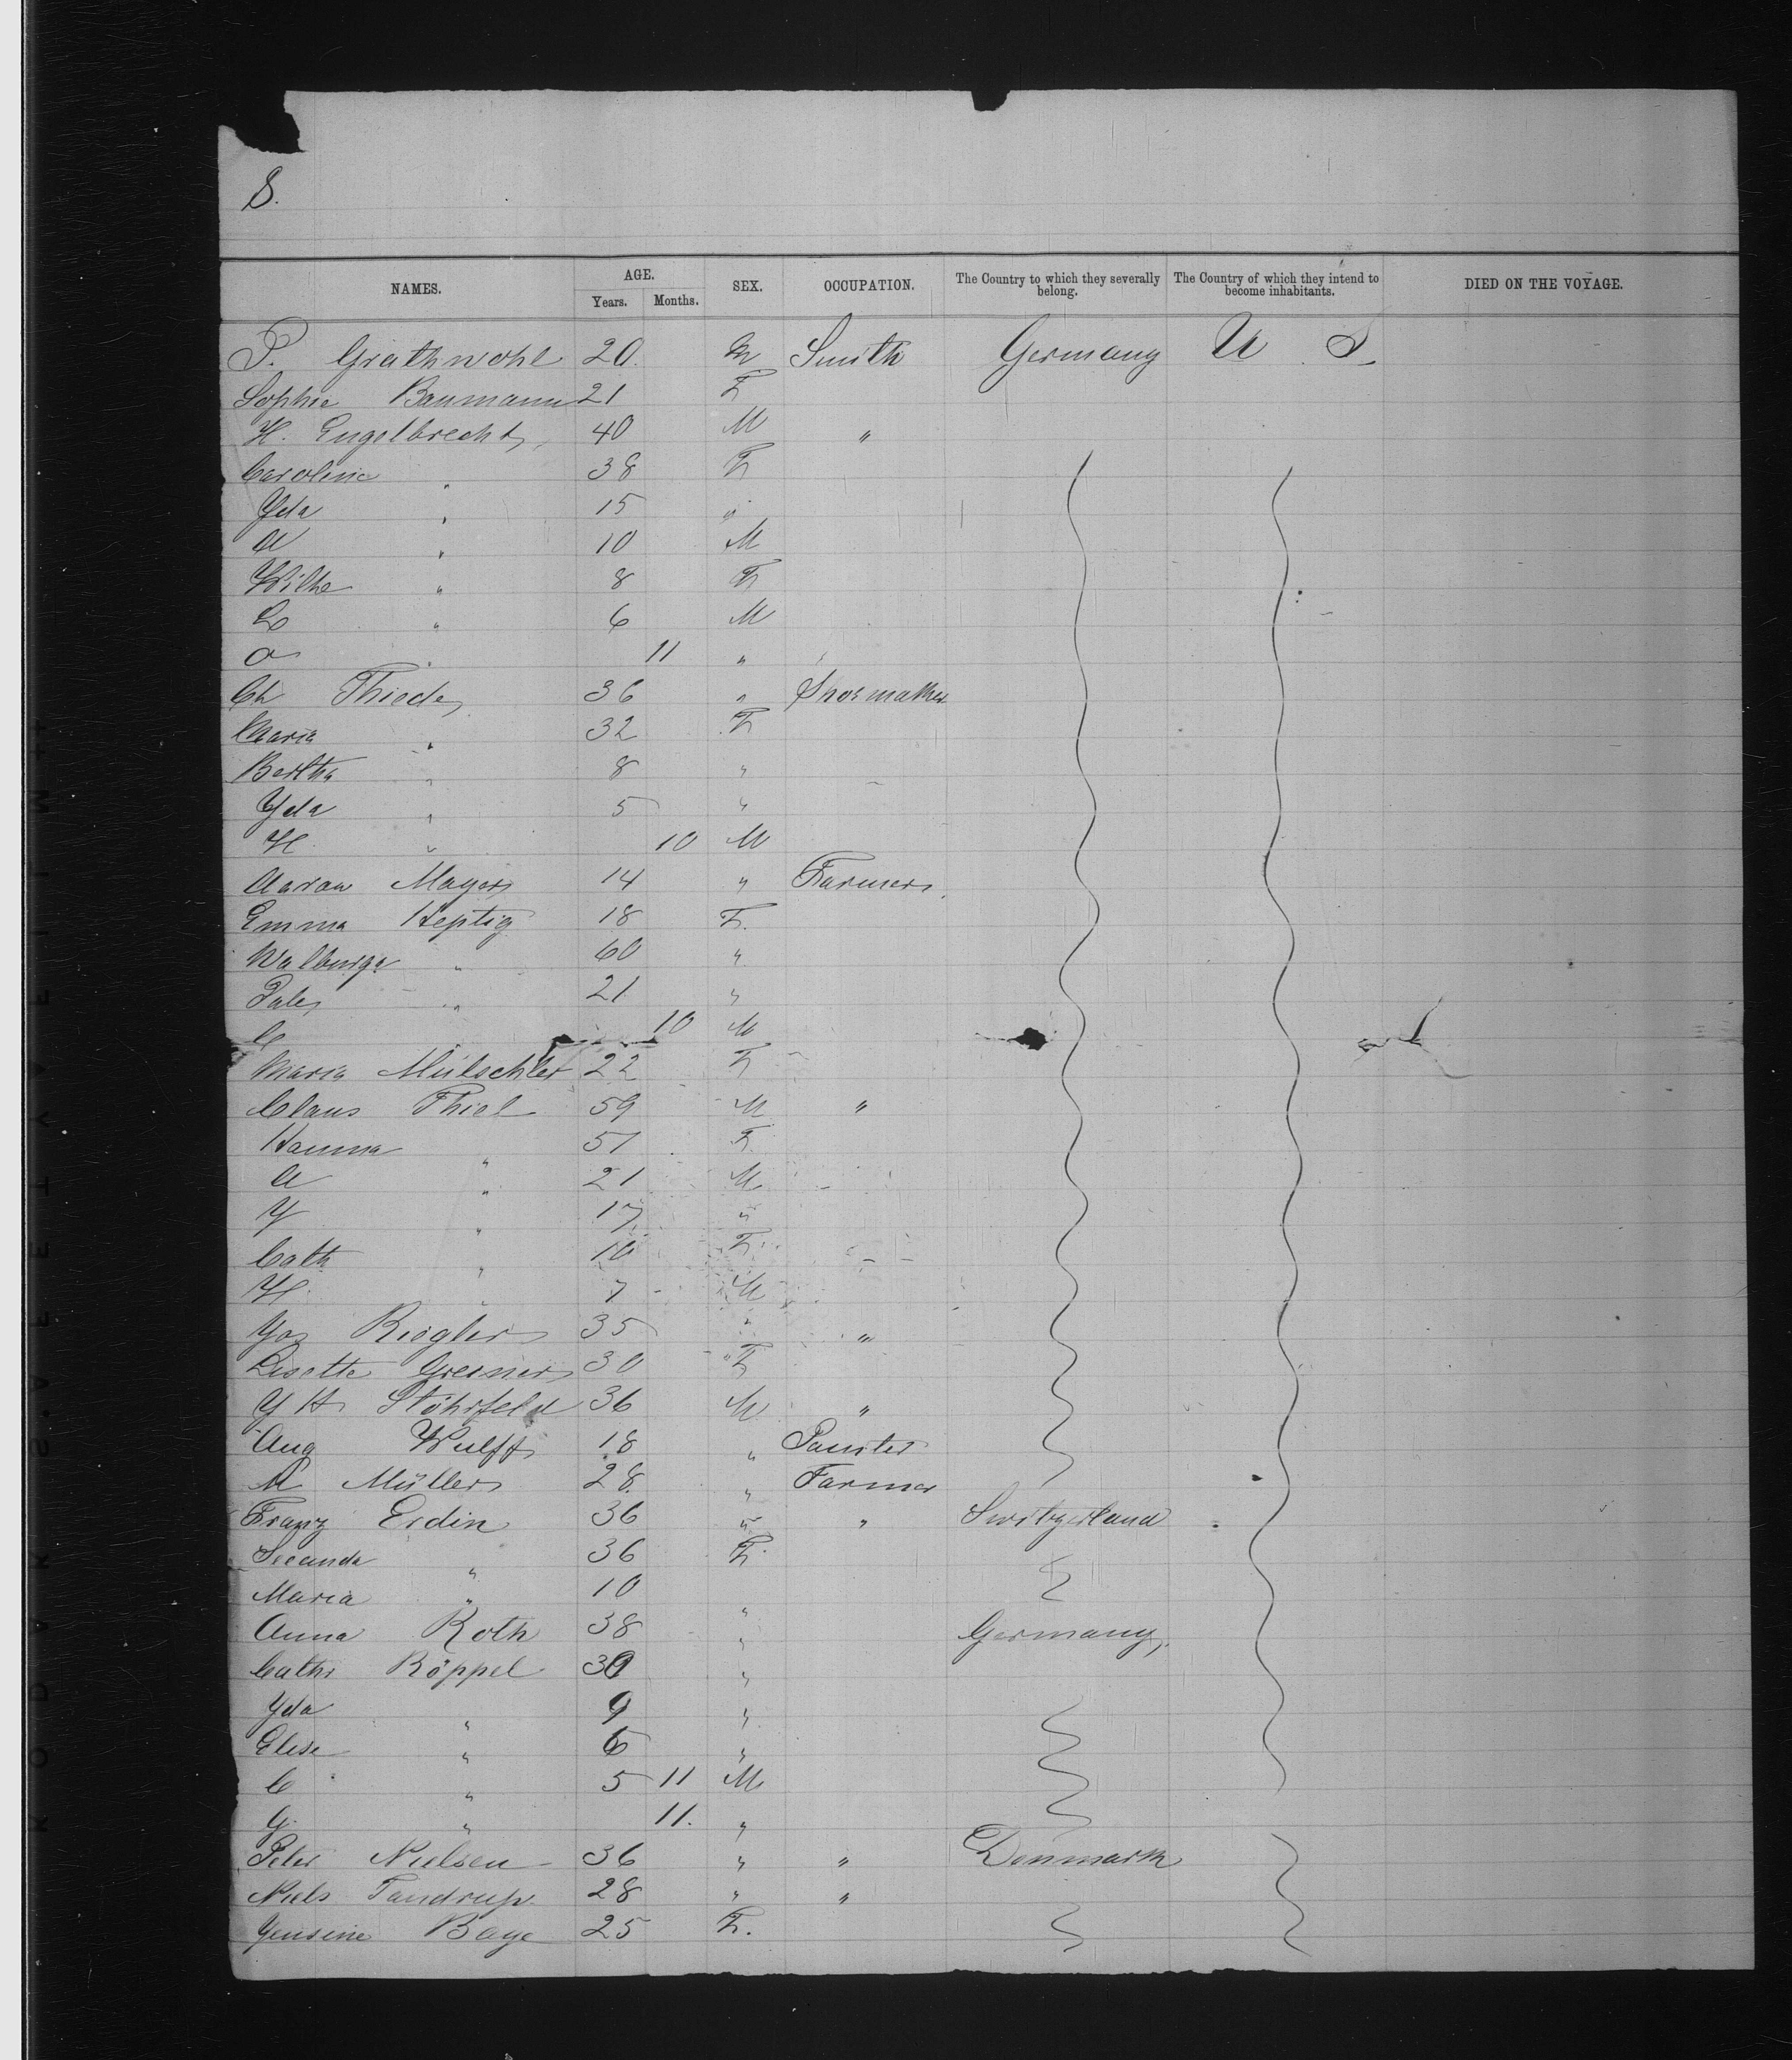 8.
NAMES. AGE. SEX. OCCUPATION. The Country to which they severally belong. The Country of which they intend to become inhabitants. DIED ON THE VOYAGE.
Years. Months.
P. Grathwohl 20. M Smith Germany U. S.
Sophie Baumann 21 F
H. Engelbrecht 40 M "
Caroline " 38 F
Yda " 15 "
A " 10 M
Wilhe " 8 F
L " 6 M
O " 11 "
Ch Thiede 36 " Shoemaker
Maria " 32 F
Bertha " 8 "
Yda " 5 "
H " 10 M
Aaron Mayer 14 " Farmers
Emma Heptig 18 F.
Walburga " 60 "
" 21 "
C 10 M
Maria Mütschler 22 F
Claus Thiel 59 M "
Hanna " 51 F
A " 21 M
Y " 17 "
Cath " 10 F
H " 7 M
Jos Riegler 35 " "
Lisette Greiner 30 " F
Y H Stöhrfeld 36 M "
Aug Wulff 18 " Painter
M Müller 28 " Farmer
Franz Erdin 36 " " Switzerland
Secunda " 36 F
Maria " 10 "
Anna Roth 38 " Germany
Cath Röppel 30 "
Yda " 9 "
Elise " 6 "
C " 5 11 M
G " 11. "
Peter Nielsen 36 " " Denmark
Niels Tandrup 28 " "
Yensine Bage 25 F.